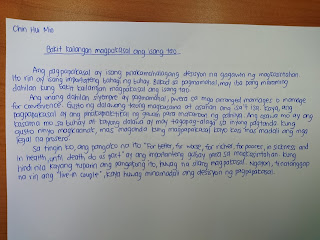 Chin Hui Mie
Bakit kailangan magpakasal ang isang tao
Ang pagpapakasal ay isang pinakamahalagang disisyon na gagawin ng magkasintahan.
Ito rin ay isang importanteng bahagi ng buhay. Bukod sa pagmamahal, may iba pang maraming
dahilan kung bakit kailangan magpakasal ang isang tao.
Ang unang dahilan siyempre ay pagmamahal, puwera sa mga arranged marriages o marriage
for convenience. Gusto ng dalawang taong magkasama at asahan ang isa't isa. Kaya, ang
pagpapakasal ay ang pinakapraktikal na gawin, para makaroon ng pamilya. Ang asawa mo ay ang
kasama mo sa buhay at kayong dalawa ay may tagapag-alaga sa inyong pagtanda. Kung
gusto ninyo magkaanak, mas maganda kung magpapakasal kayo kasi mas madali ang mga
legal na proseso.
Sa tingin ko, ang pangako na ito "For better, for worse, for richer, for poorer, in sickness and
in health, until death do us part" ay ang importanteng gabay para sa magkasintahan. Kung
hindi nila kayang tuparin ang pangakong ito, huwag na silang magpakasal. Ngayon, tinatanggap
na rin ang "live-in couple", kaya huwag minamadali ang desisyon ng pagpapakasal.